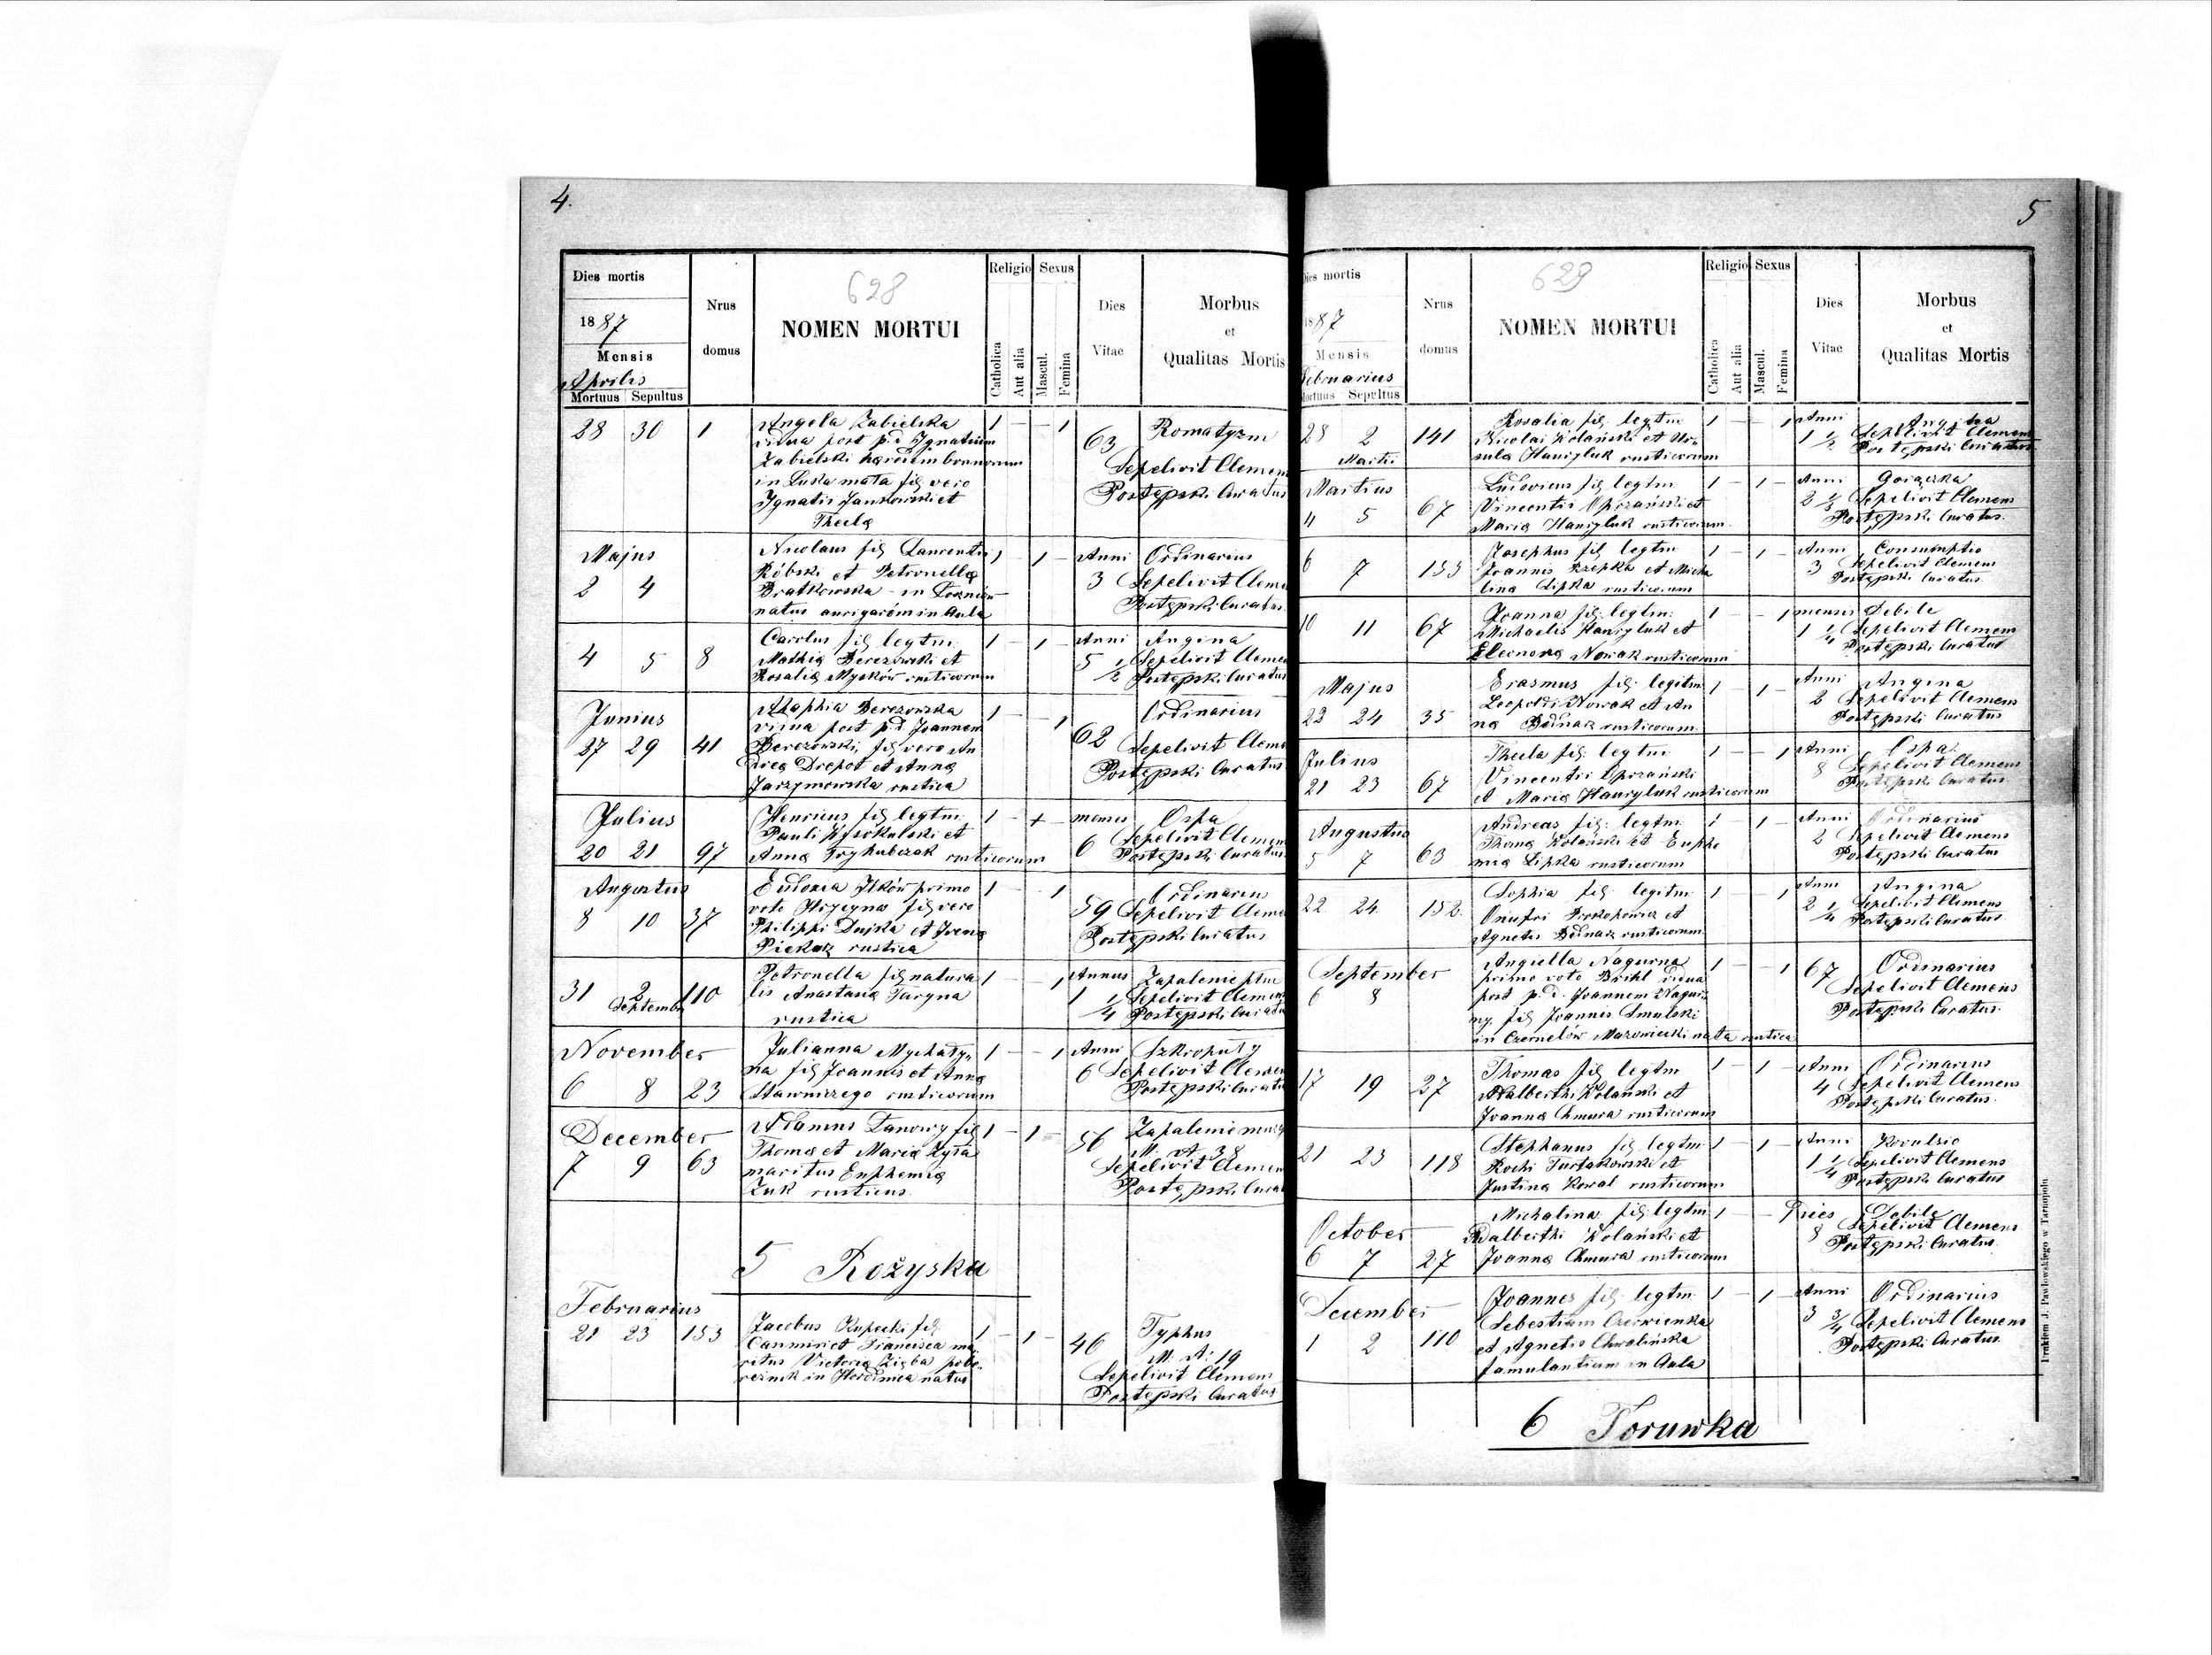 4.
Dies mortis
1887
Mensis
Aprilis
Mortuus Sepultus
Nrus
domus
628
NOMEN MORTUI
Religio Sexus
Catholica
Aut alia
Mascul.
Femina
Dies
Vitae
Morbus
et
Qualitas Mortis
28 30 1
Angela Zabielska
vidua post p.d. Ignatium
Zabielski
in Luka mała fil. vero
Ignatii Jankowski et
Thecla
1 — — 1
63
Romatyzm
Sepelivit Clemens
Postępski Curatus
Majus
2 4
Nicolaus fil. Laurentii
Róbski et Petronella
Bratkowska - in
natus aurigarum in Aula
1 — 1 —
Anni
3
Ordinarius
Sepelivit Clemens
Postępski Curatus
4 5 8
Carolus fil. legtm.
Mathia Berezowski et
Rosalia Myśków rusticorum
1 — 1 —
Anni
5 1/2
Angina
Sepelivit Clemens
Postępski Curatus
Junius
27 29 41
Berezowska
vidua post p.d. Joannem
Berezowski, fil. vero An
drea Drepot et Anna
Jarzymowska rustica
1 — — 1
62
Ordinarius
Sepelivit Clemens
Postępski Curatus
Julius
20 21 97
Henricus fil. legtm.
Pauli Wysokulski et
Anna Tryhubczak rusticorum
1 — + —
menses
6
Ospa
Sepelivit Clemens
Postępski Curatus
Augustus
8 10 37
Eudoxia Ilków primo
voto fil. vero
Philippi Dujka et Irena
Piekarz rustica
1 — — 1
59
Ordinaria
Sepelivit Clemens
Postępski Curatus
31 2 110
Septembr
Petronella fil. natura
lis Anastasia Taryna
rustica
1 — — 1
Annus
1 1/4
Zapalenie płuc
Sepelivit Clemens
Postępski Curatus
November
6 8 23
Julianna Mychały-
na fil. Joannis et Anna
Stawniczego rusticorum
1 — — 1
Anni
6
Szkrofuły
Sepelivit Clemens
Postępski Curatus
December
7 9 63
Adamus Łanowy fil.
Thoma et Maria Zyła
maritus Euphemia
Żuk rusticus
1 — 1 —
56
Zapalenie mózg
M. A. 38
Sepelivit Clemens
Postępski Curat
5 Rożyska
Februarius
21 23 153
Jacobus Kupecki fil.
Casimiri et Francisca ma-
ritus Victoria Zięba pobe-
reżnik in Hordinia natus
1 — 1 —
46
Typhus
M. A. 19
Sepelivit Clemens
Postępski Curatus
5
Dies mortis
1887
Mensis
Februarius
Mortuus Sepultus
Nrus
domus
629
NOMEN MORTUI
Religio Sexus
Catholica
Aut alia
Mascul.
Femina
Dies
Vitae
Morbus
et
Qualitas Mortis
28 2 141
Martii
Rosalia fil. legtm.
Nicolai Kolański et Ur-
sula Hauryluk rusticorum
1 — — 1
Anni
1 1/2
Angina
Sepelivit Clemens
Postępski Curatus
Martius
4 5 67
Ludovicus fil. legtm.
Vincentii Oprzański et
Maria Hauryluk rusticorum
1 — 1 —
Anni
2 1/3
Gorączka
Sepelivit Clemens
Postępski Curatus.
6 7 133
Josephus fil. legtm
Joannis Rzepka et Micha
lina Lipka rusticorum
1 — 1 —
Anni
3
Consumptio
Sepelivit Clemens
Postępski Curatus
10 11 67
Joanna fil. legtm.
Michaelis Hauryluk et
Eleonora Nowak rusticorum
1 — — 1
menses
1 1/4
Debile
Sepelivit Clemens
Postępski Curatus
Majus
22 24 35
Erasmus fil. legitm
Leopoldi Nowak et An
na Bednarz rusticorum
1 — 1 —
Anni
2
Angina
Sepelivit Clemens
Postępski Curatus
Julius
21 23 67
Thecla fil. legtm
Vincentii Oprzański
et Maria Hauryluk rusticorum
1 — — 1
Anni
8
Ospa
Sepelivit Clemens
Postępski Curatus
Augustus
5 7 63
Andreas fil. legtm.
Thoma Kolański et Euphe
mia Lipka rusticorum
1 — 1 —
Anni
2
Ordinarius
Sepelivit Clemens
Postępski Curatus
22 24 152.
Sophia fil. legitm
Onufri Prokopowicz et
Agnetis Bednarz rusticorum
1 — — 1
Anni
2 1/4
Angina
Sepelivit Clemens
Postępski Curatus.
September
6 8
Angiella Nagurna
primo voto Brikl vidua
post p.d. Joannem Nagur-
ny. fil. Joannis Smulski
in Czernelów Mazowiecki nata rustica
1 — — 1
67
Ordinarius
Sepelivit Clemens
Postępski Curatus.
17 19 27
Thomas fil. legtm
Adalberthi Kolański et
Joanna Chmura rusticorum
1 — 1 —
Anni
4
Ordinarius
Sepelivit Clemens
Postępski Curatus.
21 23 118
Stephanus fil. legtm.
Rochi Turtakowski et
Justina Kowal rusticorum
1 — 1 —
Anni
1 1/4
Kovulsio
Sepelivit Clemens
Postępski Curatus
October
6 7 27
Michalina fil. legtm
Adalberthi Kolański et
Joanna Chmura rusticorum
1 —
Dies
8
Debile
Sepelivit Clemens
Postępski Curatus.
December
1 2 110
Joannes fil. legtm.
Sebestiani Czerwienka
et Agnetis Chwalińska
famulantium in Aula
1 — 1 —
Anni
3 3/4
Ordinarius
Sepelivit Clemens
Postępski Curatus.
6 Toruwka
Drukiem J. Pawłowskiego w Tarnopolu